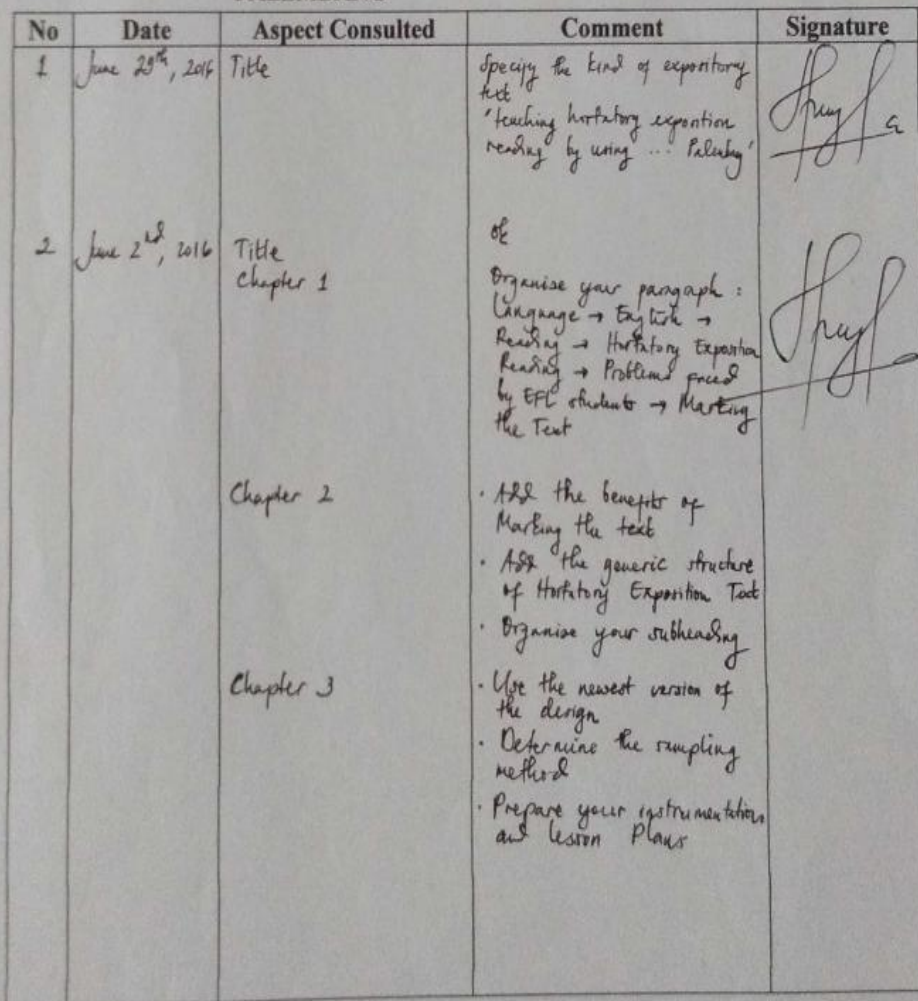 No Date Aspect Consulted Comment Signature
1 June 29th, 2016 Title Specify the kind of expository
text
'teaching hortatory exposition
reading by using ... Palembang'
2 June 2nd, 2016 Title ok
Chapter 1 Organise your paragraph :
Language → English →
Reading → Hortatory Exposition
Reading → Problems faced
by EFL students → Marking
the Text
Chapter 2 · Add the benefits of
Marking the text
· Add the generic structure
of Hortatory Exposition Text
· Organise your subheading
Chapter 3 · Use the newest version of
the design
· Determine the sampling
method
· Prepare your instrumentation
and lesson Plans